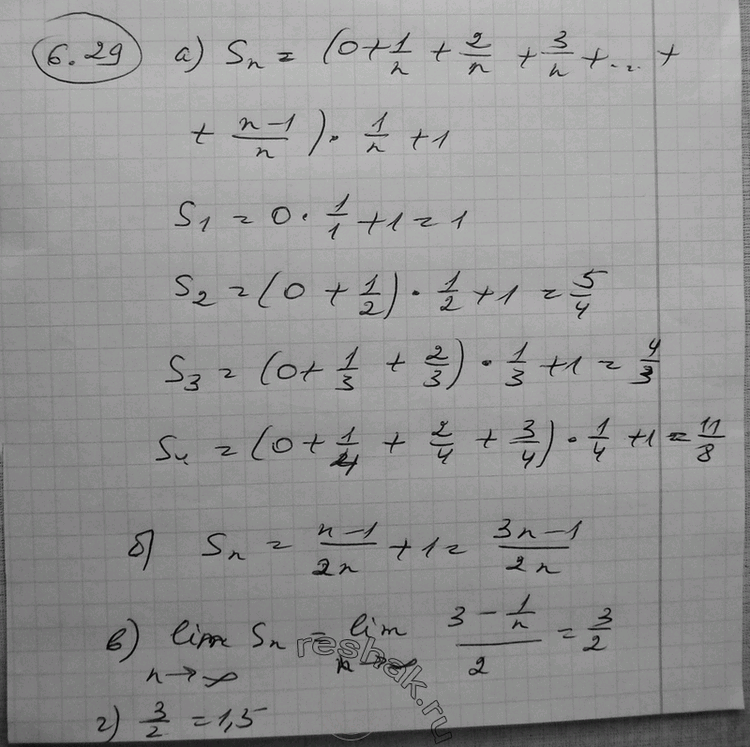 6.29 а) Sn = (0 + 1/n + 2/n + 3/n + ... +
+ (n-1)/n) · 1/n + 1
S1 = 0 · 1/1 + 1 = 1
S2 = (0 + 1/2) · 1/2 + 1 = 5/4
S3 = (0 + 1/3 + 2/3) · 1/3 + 1 = 4/3
S4 = (0 + 1/4 + 2/4 + 3/4) · 1/4 + 1 = 11/8
б) Sn = (n-1)/2n + 1 = (3n-1)/2n
в) lim n→∞ Sn = lim n→∞ (3 - 1/n)/2 = 3/2
г) 3/2 = 1,5
reshak.ru